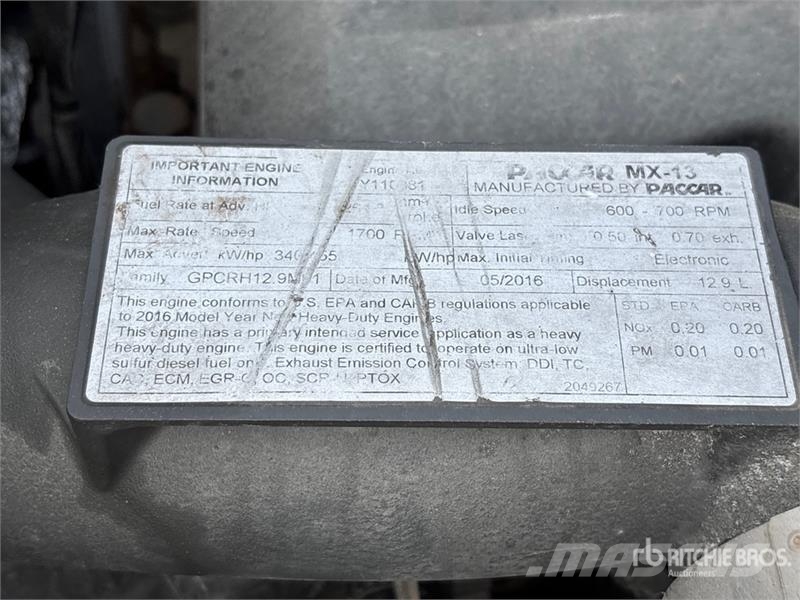 IMPORTANT ENGINE INFORMATION
PACCAR MX-13
MANUFACTURED BY PACCAR
Fuel Rate at Adv.
Idle Speed 600 - 700 RPM
Max. Rate Speed 1700
Valve Las 0.50 int. 0.70 exh.
Max kW/hp
kW/hp
Max. Initial Timing Electronic
Family GPCRH12.9M
Date of Mfg 05/2016
Displacement 12.9 L
This engine conforms to U.S. EPA and CARB regulations applicable
to 2016 Model Year New Heavy-Duty Engines.
This engine has a primary intended service application as a heavy
heavy-duty engine. This engine is certified to operate on ultra-low
sulfur diesel fuel only. Exhaust Emission Control System: DDI, TC,
CAC, ECM, SCR PTOX
STD EPA CARB
NOx 0.20 0.20
PM 0.01 0.01
2049267
MASCUS
rb RITCHIE BROS.
Auctioneers